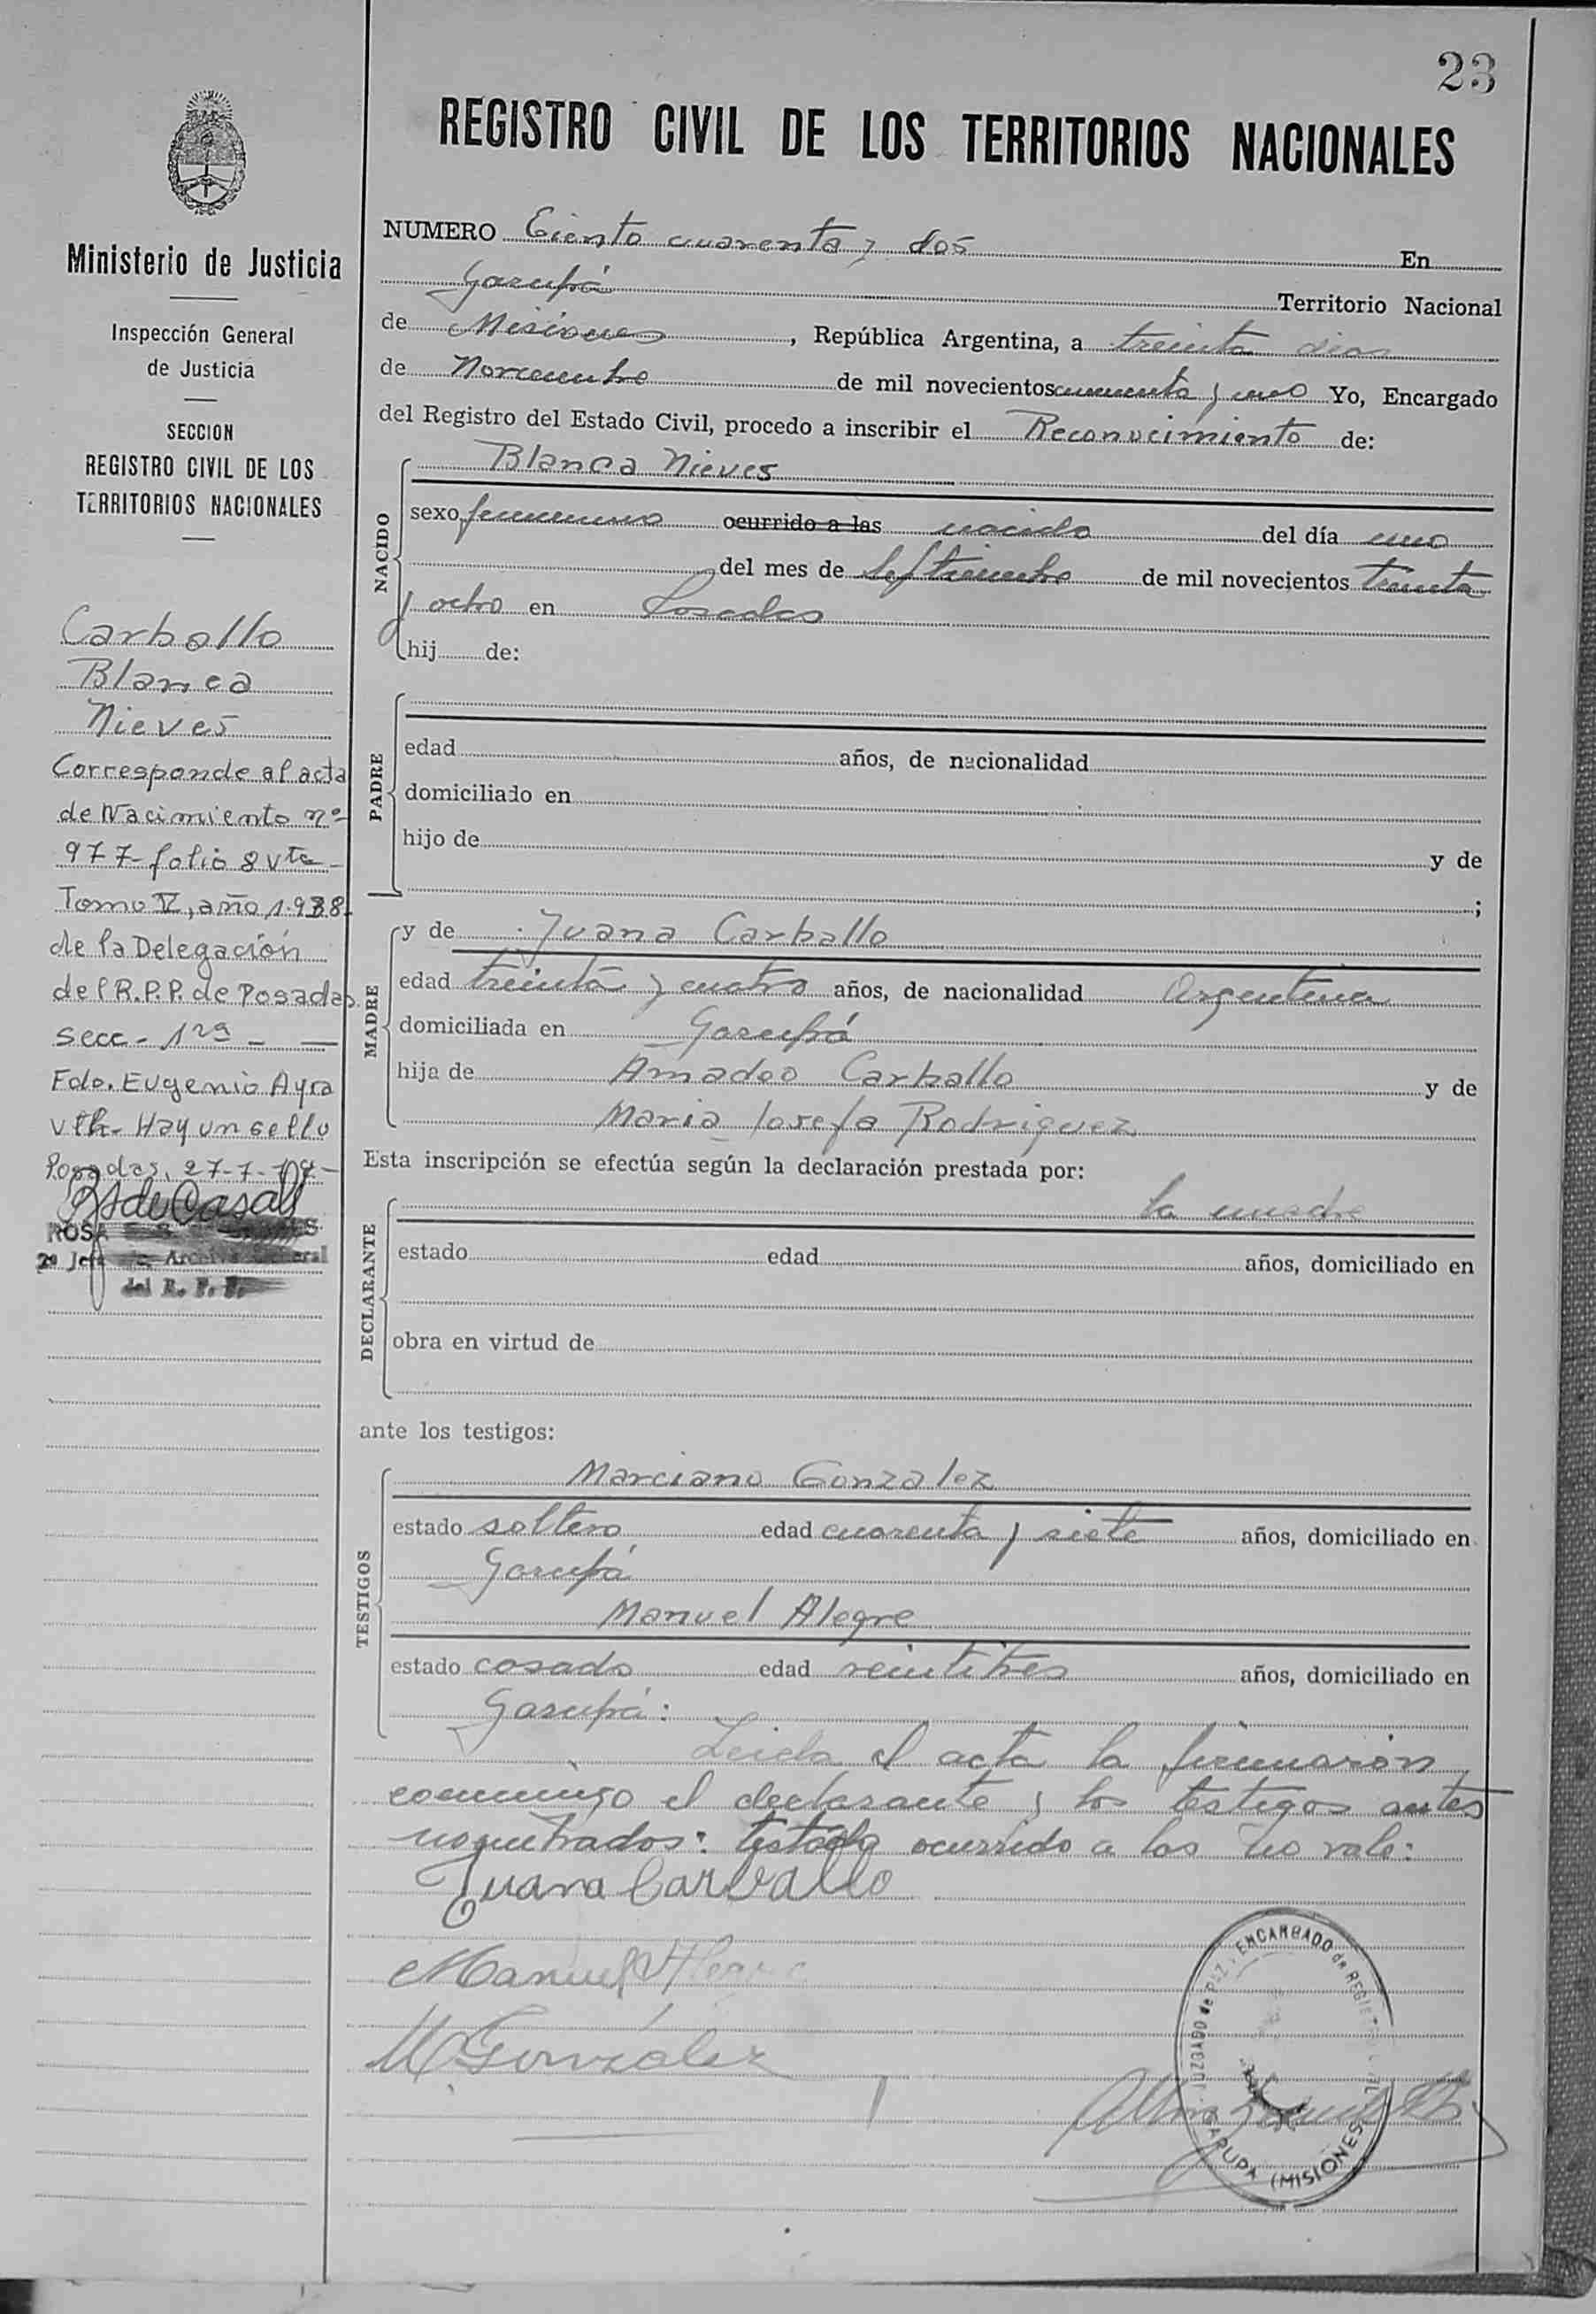 23
REGISTRO CIVIL DE LOS TERRITORIOS NACIONALES
Ministerio de Justicia
Inspección General
de Justicia
SECCION
REGISTRO CIVIL DE LOS
TERRITORIOS NACIONALES
Carballo
Blanca
Nieves
Corresponde al acta
de Nacimiento nº
977-folio 8 vta-
Tomo V, año 1.938.
de la Delegación
del R.P.P. de Posadas.
secc- 1ra - —
Fdo. Eugenio Ayra
Hay un sello
Posadas, 27-7-
ROSA
2º Jefe Archivo General
del R. P. P.
NUMERO Ciento cuarenta y dos En
Garupá Territorio Nacional
de Misiones, República Argentina, a treinta dias
de Noviembre de mil novecientos cincuenta y uno Yo, Encargado
del Registro del Estado Civil, procedo a inscribir el Reconocimiento de:
NACIDO
Blanca Nieves
sexo femenino ocurrido a las nacida del día uno
del mes de Septiembre de mil novecientos treinta
y ocho en Posadas
hij de:
PADRE
edad años, de nacionalidad
domiciliado en
hijo de y de
;
MADRE
y de Juana Carballo
edad treinta y cuatro años, de nacionalidad Argentina
domiciliada en Garupá
hija de Amadeo Carballo y de
Maria Josefa Rodriguez
Esta inscripción se efectúa según la declaración prestada por:
DECLARANTE
la madre
estado edad años, domiciliado en
obra en virtud de
ante los testigos:
TESTIGOS
Marciano Gonzalez
estado soltero edad cuarenta y siete años, domiciliado en
Garupá
Manuel Alegre
estado casado edad veintitres años, domiciliado en
Garupá:
Leida el acta la firmaron
conmigo el declarante y los testigos antes
nombrados: testado ocurrido a las no vale:
Juana Carballo
Manuel Alegre
M Gonzalez
JUZGADO de PAZ y ENCARGADO de REGISTRO CIVIL
GARUPA (MISIONES)